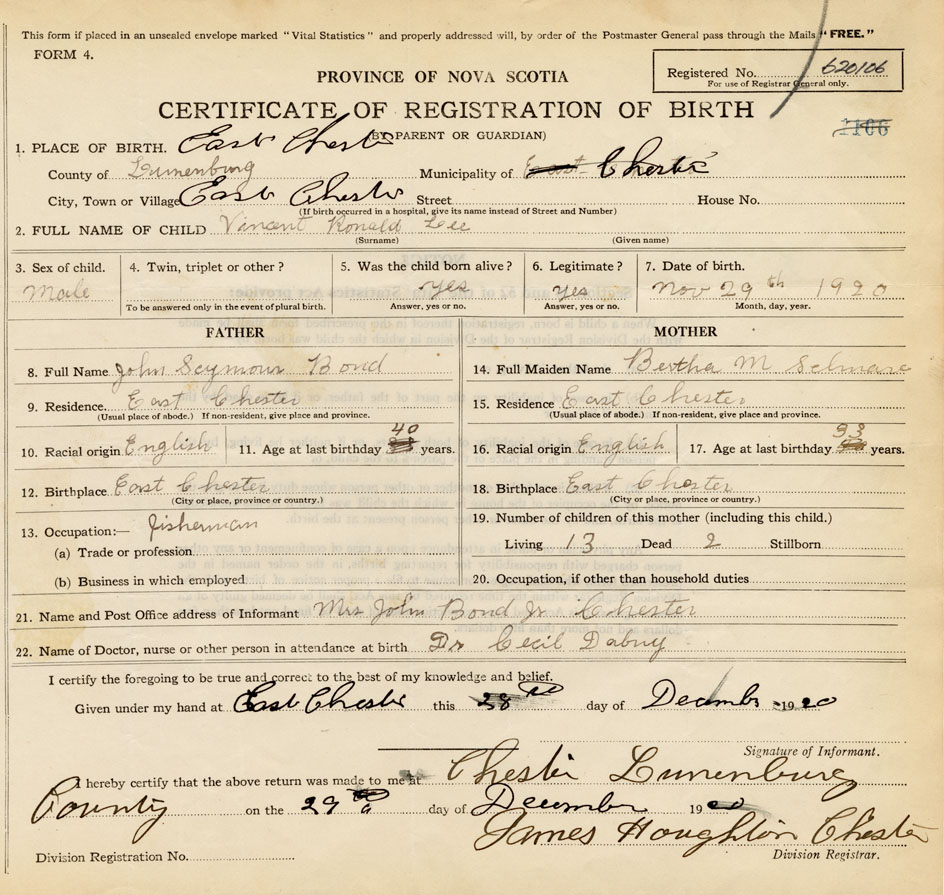 This form if placed in an unsealed envelope marked "Vital Statistics" and properly addressed will, by order of the Postmaster General pass through the Mails "FREE."
FORM 4.
PROVINCE OF NOVA SCOTIA
Registered No. 620106
For use of Registrar General only.
CERTIFICATE OF REGISTRATION OF BIRTH
(BY PARENT OR GUARDIAN)
1166
1. PLACE OF BIRTH. East Chester
County of Lunenburg Municipality of East Chester
City, Town or Village East Chester Street House No.
(If birth occurred in a hospital, give its name instead of Street and Number)
2. FULL NAME OF CHILD Vincent Ronald Lee
(Surname) (Given name)
3. Sex of child. 4. Twin, triplet or other? 5. Was the child born alive? 6. Legitimate? 7. Date of birth.
Male yes yes Nov 29th 1920
To be answered only in the event of plural birth. Answer, yes or no. Answer, yes or no. Month, day, year.
FATHER MOTHER
8. Full Name John Seymour Bond 14. Full Maiden Name Bertha M
9. Residence. East Chester 15. Residence East Chester
(Usual place of abode.) If non-resident, give place and province. (Usual place of abode.) If non-resident, give place and province.
10. Racial origin English 11. Age at last birthday 40 years. 16. Racial origin English 17. Age at last birthday years.
12. Birthplace East Chester 18. Birthplace East Chester
(City or place, province or country.) (City or place, province or country.)
13. Occupation:— fisherman 19. Number of children of this mother (including this child.)
(a) Trade or profession Living 13 Dead 2 Stillborn
(b) Business in which employed 20. Occupation, if other than household duties
21. Name and Post Office address of Informant Mrs John Bond Jr Chester
22. Name of Doctor, nurse or other person in attendance at birth Dr Cecil
I certify the foregoing to be true and correct to the best of my knowledge and belief.
Given under my hand at East Chester this 28 day of December 1920
Signature of Informant.
I hereby certify that the above return was made to me at Chester Lunenburg
County on the 29 day of December 1920
James Houghton Chester
Division Registration No. Division Registrar.